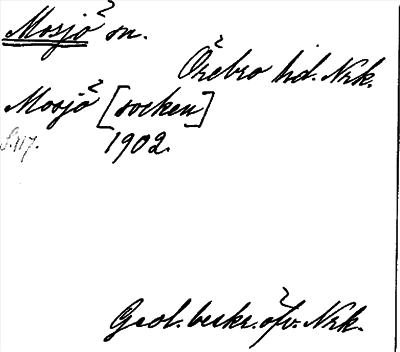 Mosjö sn.
Örebro hd. Nrk.
Mosjö [socken]
S. 117. 1902.
Geol. beskr. öfv. Nrk.